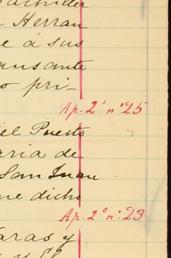 Herran
e á sus
ansante
o pri
Ap. 2º nº 25
del Puesto
aria de
San Juan
ue dicho
Ap. 2º nº 23
Varas y